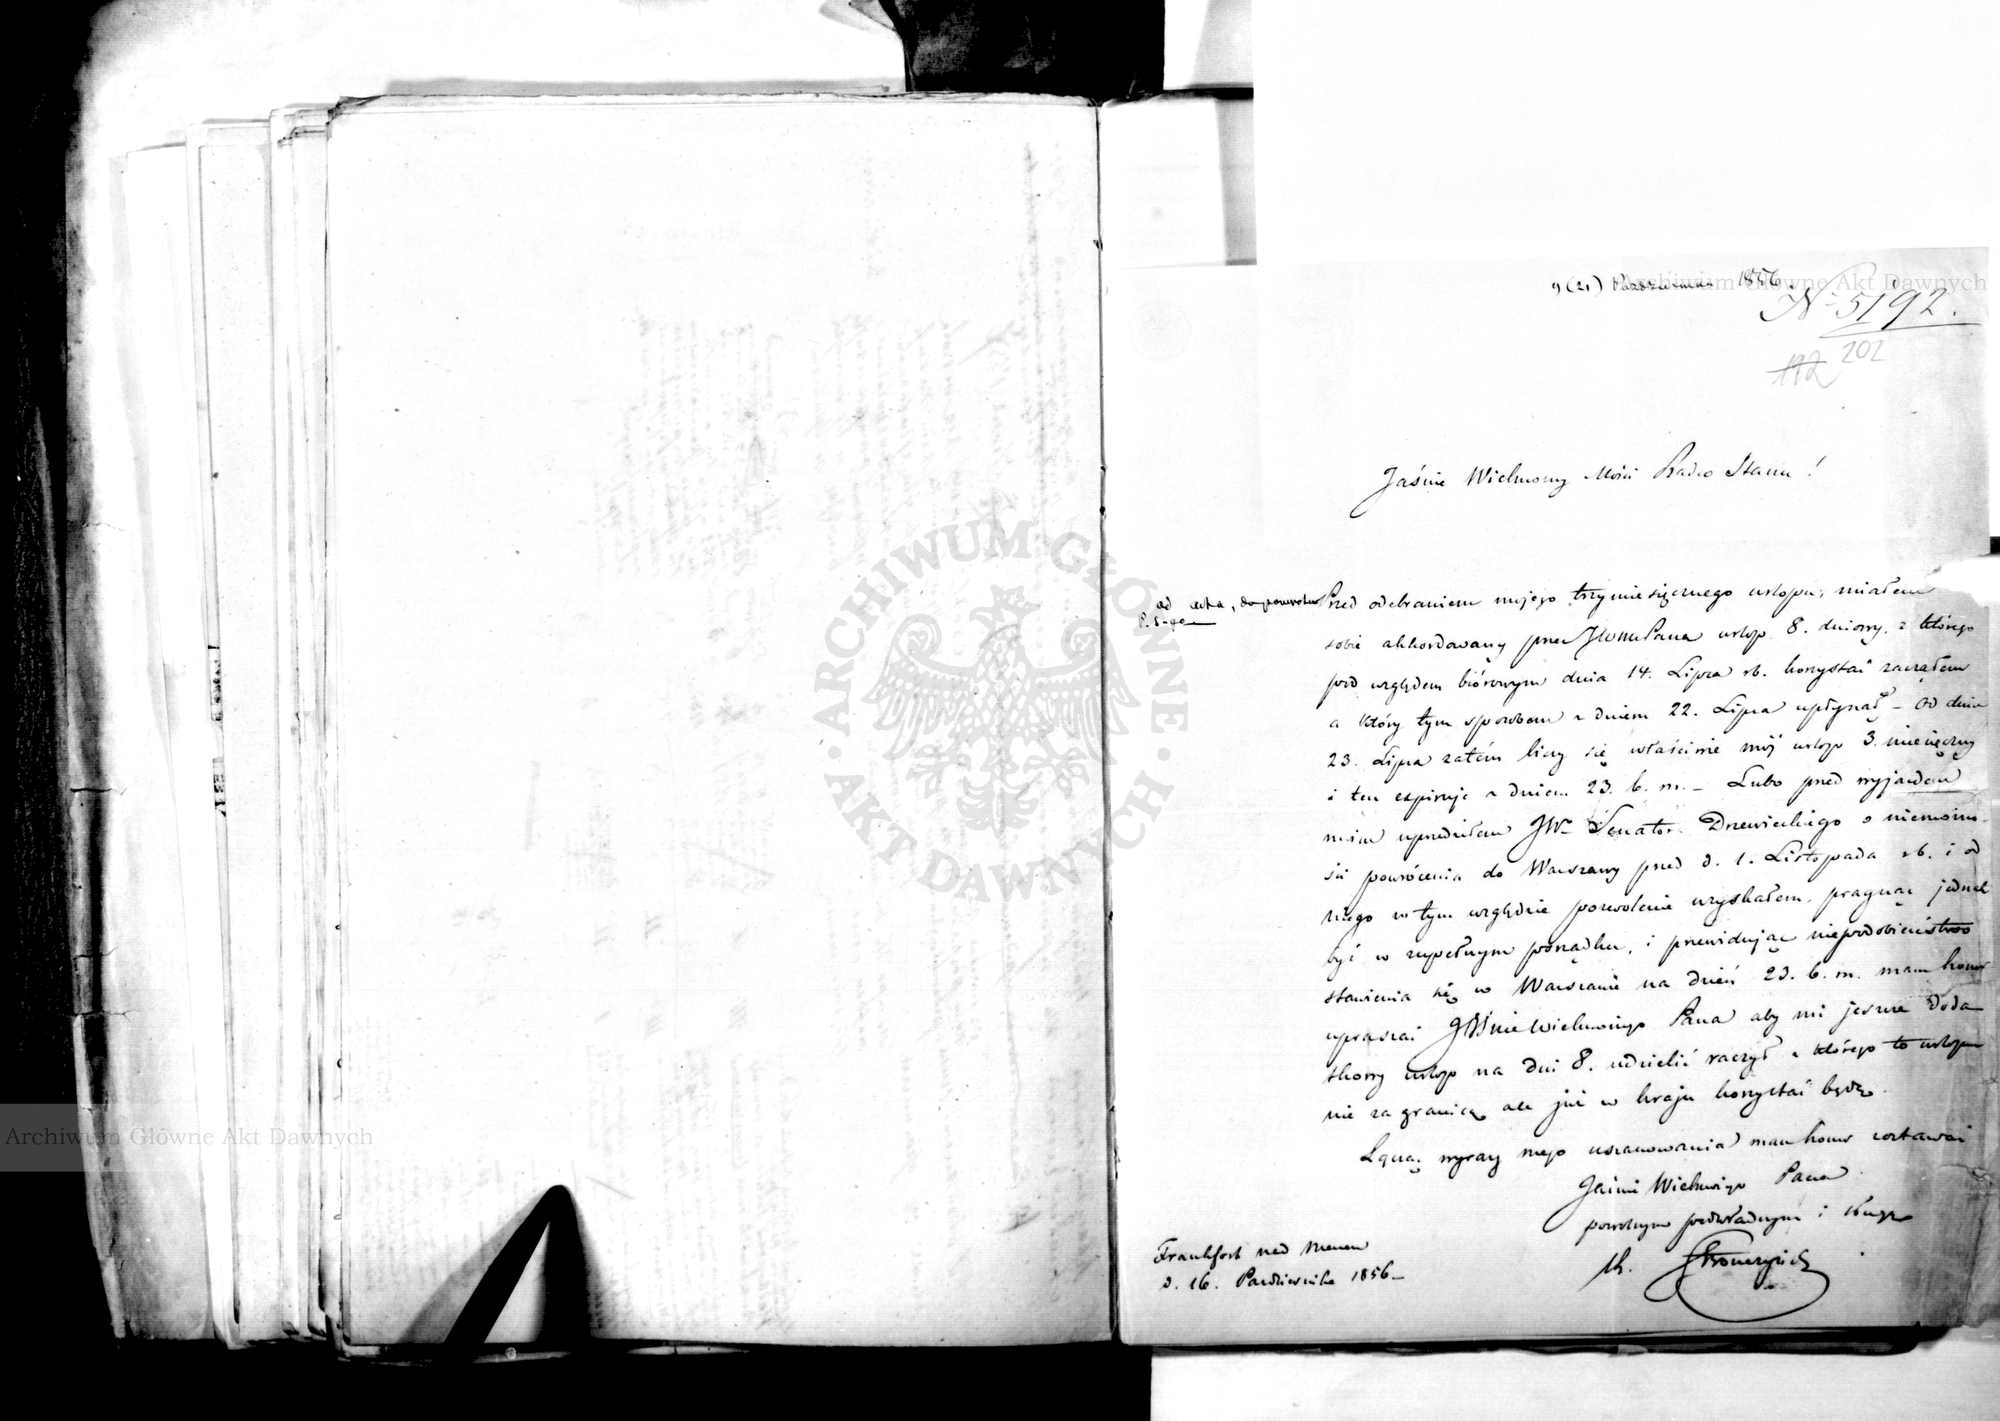 9 (21) Października 1856.
Archiwum Główne Akt Dawnych
№ 5192.
202
192
Jaśnie Wielmożny Mości Radco Stanu!
ad acta, do powrotu
Przed odebraniem mojego trzymiesięcznego urlopu, miałem
sobie akkordowany przez JWnu Pana urlop 8. dniowy, z którego
pod względem biórowym dnia 14. Lipca rb. korzystać zacząłem
a który tym sposobem z dniem 22. Lipca upłynął – Od dnia
23. Lipca zatém liczy się właściwie mój urlop 3. miesięczny
i ten expiruje z dniem 23. b. m. – Lubo przed wyjazdem
moim uprzedziłem JWo Senator. Drzewieckiego o niemożno-
ści powrócenia do Warszawy przed d. 1. Listopada rb. i od
niego w tym względzie pozwolenie uzyskałem, pragnąc jednak
być w zupełnym porządku, i przewidując niepodobieństwo
stawienia się w Warszawie na dzień 23. b. m. mam honor
upraszać JWnie Wielmożnego Pana aby mi jeszcze doda-
tkowy urlop na dni 8. udzielić raczył z którego to urlopu
nie za granicą ale już w kraju korzystać będę.
Łącząc wyrazy mego uszanowania mam honor zostawać
Jaśnie Wielmożnego Pana
powolnym podwładnym i sługą
K. Stronczyński
Frankfort nad Menem
d. 16. Października 1856 –
ARCHIWUM GŁÓWNE · AKT DAWNYCH ·
Archiwum Główne Akt Dawnych